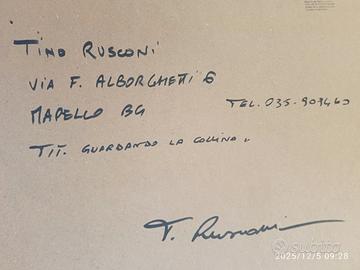 TINO RUSCONI
VIA F. ALBORGHETTI 6
MAPELLO BG TEL. 035-909460
TIT. GUARDANDO LA COLLINA..
T. Rusconi
subito
2025/12/5 09:28